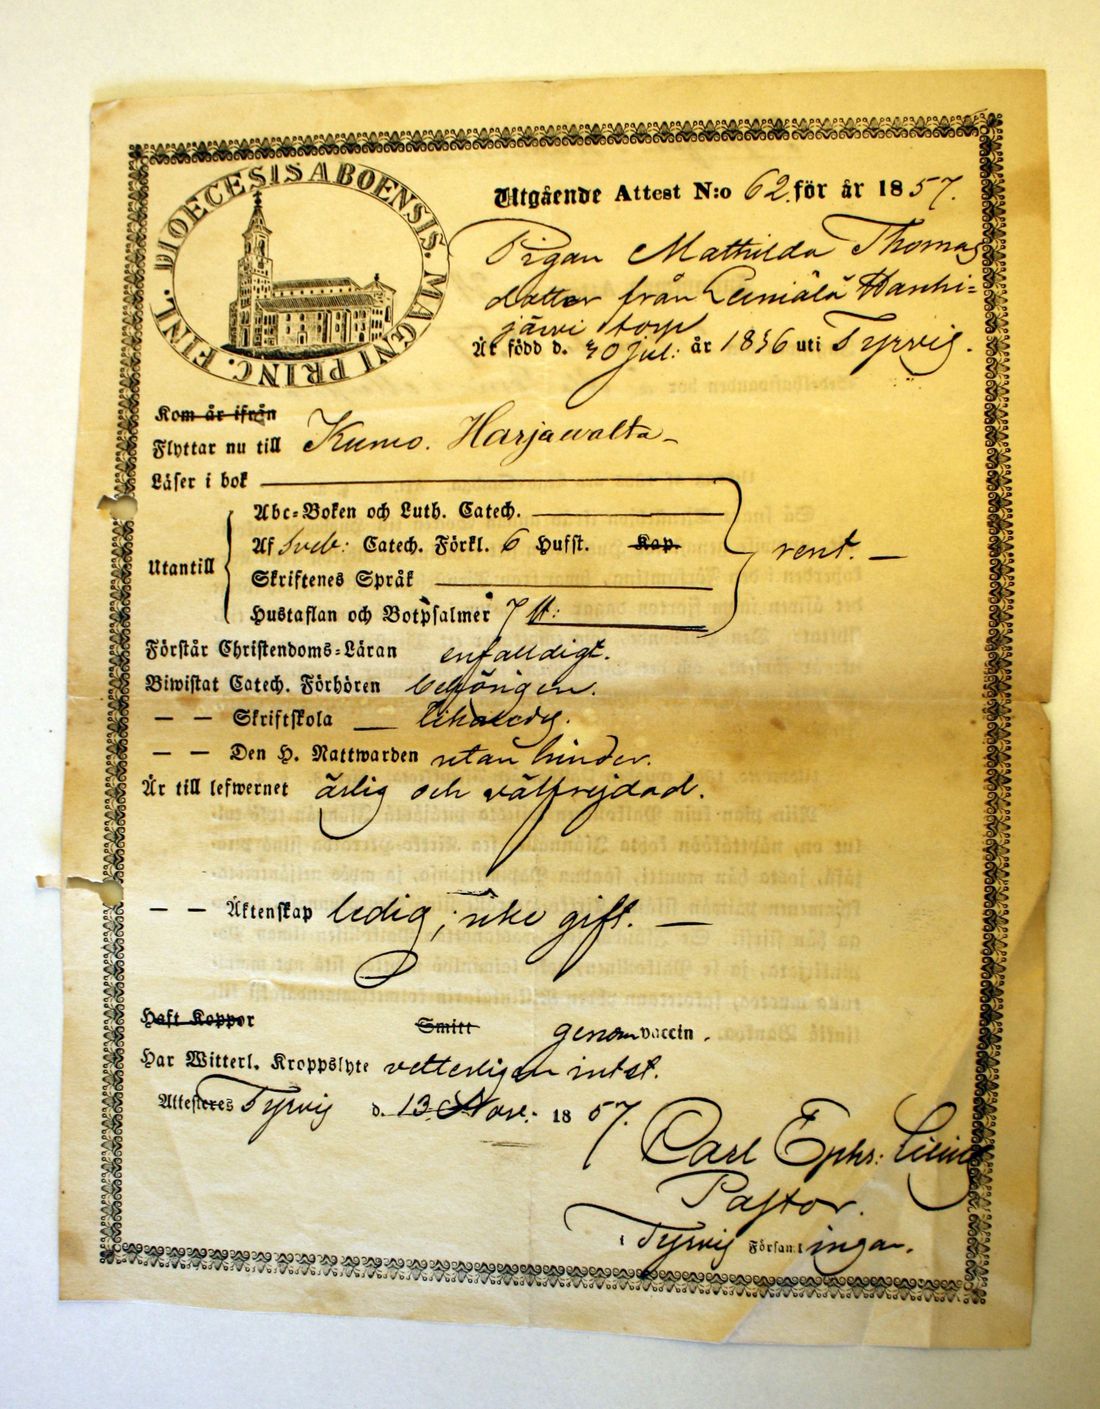 DIOECESIS ABOENSIS. MAGNI PRINC. FINL.
Utgående Attest N:o 62. för år 1857.
Pigan Mathilda Thomas
dotter från Hanhi=
järvi torp
Är född d. 30 Jul: år 1836 uti Tyrvis.
Kom år ifrån
Flyttar nu till Kumo. Harjawalta -
Läser i bok
Abc=Boken och Luth. Catech.
Utantill
Af Sveb: Catech. Förkl. 6 Hufst. Kap.
rent. -
Skriftenes Språk
Hustaflan och Botpsalmer 7 st:
Förstår Christendoms=Läran enfalldigt.
Biwistat Catech. Förhören behörigen.
— — Skriftskola — likaledes.
— — Den H. Nattwarden utan hinder.
Är till lefwernet ärlig och välfrejdad.
— — Äktenskap ledig, icke gift. —
Haft Koppor Smitt genom vaccin.
Har Witterl. Kroppslyte vetterligen intet.
Attesteres Tyrvis d. 13 Nov. 1857.
Carl Ephr:
Pastor.
i Tyrvis Församlingar.